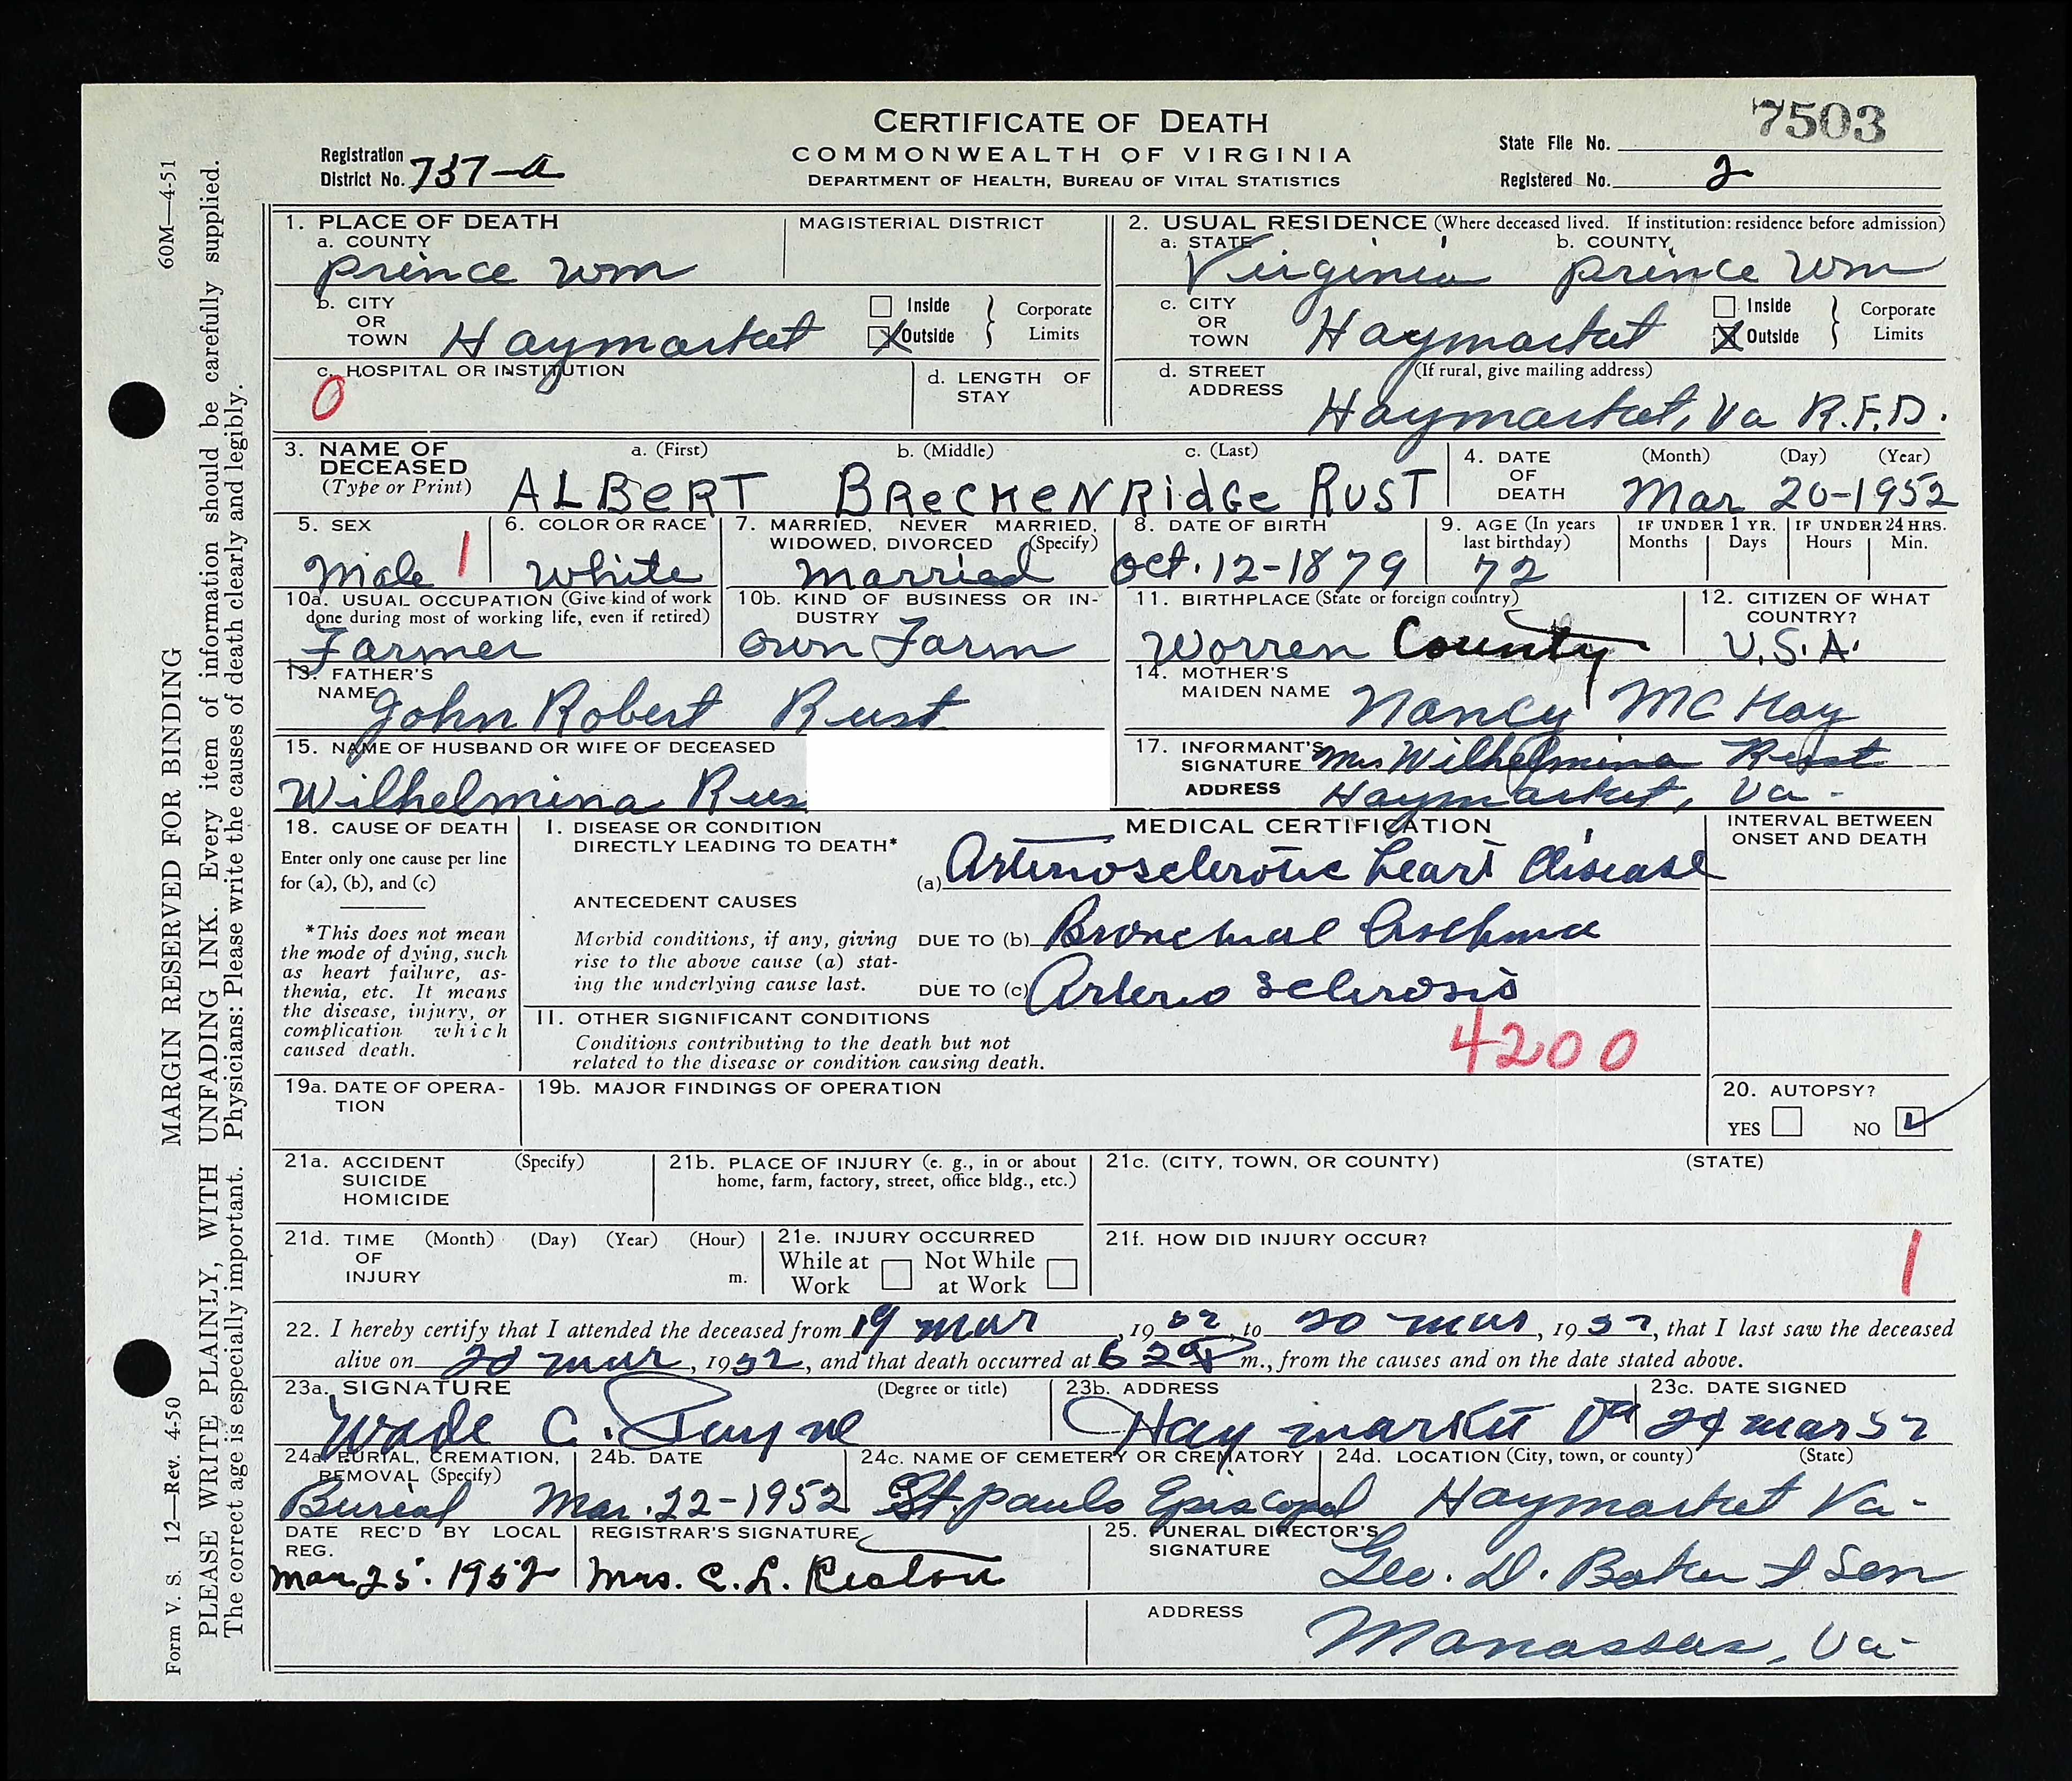 7503
CERTIFICATE OF DEATH
COMMONWEALTH OF VIRGINIA
DEPARTMENT OF HEALTH, BUREAU OF VITAL STATISTICS
Registration District No. 737-a
State File No.
Registered No. 2
60M—4-51
MARGIN RESERVED FOR BINDING
PLEASE WRITE PLAINLY, WITH UNFADING INK. Every item of information should be carefully supplied.
The correct age is especially important. Physicians: Please write the causes of death clearly and legibly.
Form V. S. 12—Rev. 4-50
1. PLACE OF DEATH
a. COUNTY
Prince Wm
MAGISTERIAL DISTRICT
2. USUAL RESIDENCE (Where deceased lived. If institution: residence before admission)
a. STATE
Virginia
b. COUNTY
Prince Wm
b. CITY OR TOWN Haymarket
Inside
X Outside
Corporate Limits
c. CITY OR TOWN Haymarket
Inside
X Outside
Corporate Limits
c. HOSPITAL OR INSTITUTION
0
d. LENGTH OF STAY
d. STREET ADDRESS
(If rural, give mailing address)
Haymarket, Va R.F.D.
3. NAME OF DECEASED
(Type or Print)
a. (First)
b. (Middle)
c. (Last)
ALBERT BRECKENRIDGE RUST
4. DATE OF DEATH
(Month) (Day) (Year)
Mar 20-1952
5. SEX
Male 1
6. COLOR OR RACE
White
7. MARRIED, NEVER MARRIED, WIDOWED, DIVORCED (Specify)
Married
8. DATE OF BIRTH
Oct. 12-1879
9. AGE (In years last birthday)
72
IF UNDER 1 YR.
Months Days
IF UNDER 24 HRS.
Hours Min.
10a. USUAL OCCUPATION (Give kind of work done during most of working life, even if retired)
Farmer
10b. KIND OF BUSINESS OR INDUSTRY
Own Farm
11. BIRTHPLACE (State or foreign country)
Warren County
12. CITIZEN OF WHAT COUNTRY?
U.S.A.
13. FATHER'S NAME
John Robert Rust
14. MOTHER'S MAIDEN NAME
Nancy McKay
15. NAME OF HUSBAND OR WIFE OF DECEASED
Wilhelmina Rus
17. INFORMANT'S SIGNATURE Mrs Wilhelmina Rust
ADDRESS Haymarket, Va.
18. CAUSE OF DEATH
Enter only one cause per line for (a), (b), and (c)
*This does not mean the mode of dying, such as heart failure, asthenia, etc. It means the disease, injury, or complication which caused death.
MEDICAL CERTIFICATION
INTERVAL BETWEEN ONSET AND DEATH
I. DISEASE OR CONDITION DIRECTLY LEADING TO DEATH*
(a) Arteriosclerotic heart disease
ANTECEDENT CAUSES
Morbid conditions, if any, giving rise to the above cause (a) stating the underlying cause last.
DUE TO (b) Bronchial Asthma
DUE TO (c) Arterio sclerosis
II. OTHER SIGNIFICANT CONDITIONS
Conditions contributing to the death but not related to the disease or condition causing death.
4200
19a. DATE OF OPERATION
19b. MAJOR FINDINGS OF OPERATION
20. AUTOPSY?
YES NO ✓
21a. ACCIDENT SUICIDE HOMICIDE
(Specify)
21b. PLACE OF INJURY (e. g., in or about home, farm, factory, street, office bldg., etc.)
21c. (CITY, TOWN, OR COUNTY)
(STATE)
21d. TIME OF INJURY
(Month) (Day) (Year) (Hour)
m.
21e. INJURY OCCURRED
While at Work
Not While at Work
21f. HOW DID INJURY OCCUR?
1
22. I hereby certify that I attended the deceased from 19 Mar, 1952, to 20 Mar, 1952, that I last saw the deceased
alive on 20 Mar, 1952, and that death occurred at m., from the causes and on the date stated above.
23a. SIGNATURE
(Degree or title)
Wade C. Payne
23b. ADDRESS
Haymarket Va
23c. DATE SIGNED
24 Mar 52
24a. BURIAL, CREMATION, REMOVAL (Specify)
Burial
24b. DATE
Mar. 22-1952
24c. NAME OF CEMETERY OR CREMATORY
St. Pauls Episcopal
24d. LOCATION (City, town, or county) (State)
Haymarket Va.
DATE REC'D BY LOCAL REG.
Mar 25. 1952
REGISTRAR'S SIGNATURE
Mrs. C. L.
25. FUNERAL DIRECTOR'S SIGNATURE
Geo. D. Baker & Son
ADDRESS
Manassas, Va.